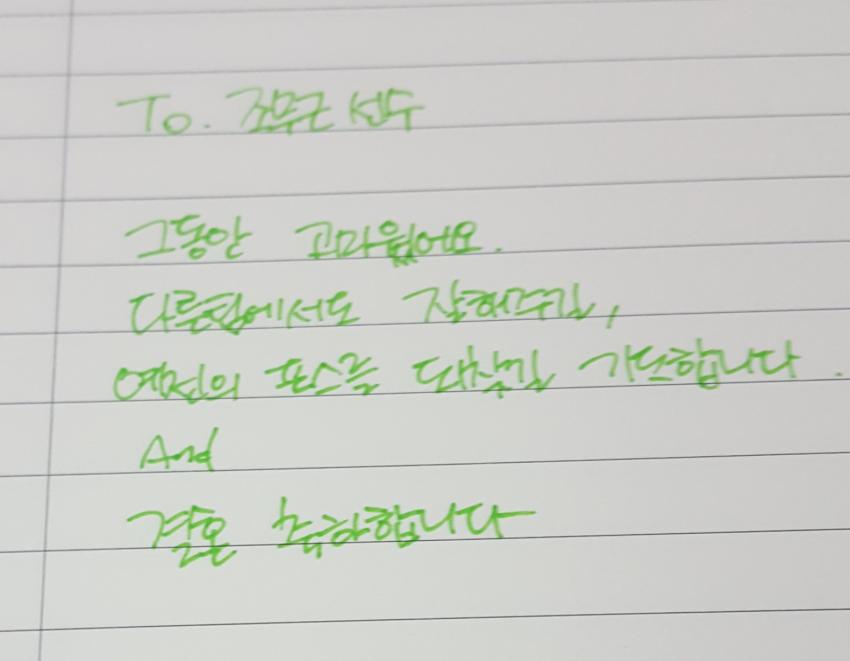 To. 조무근 선수
그동안 고마웠어요.
다른팀에서도 잘해주길,
예전의 포스를 되찾길 기도합니다.
And
결혼 축하합니다